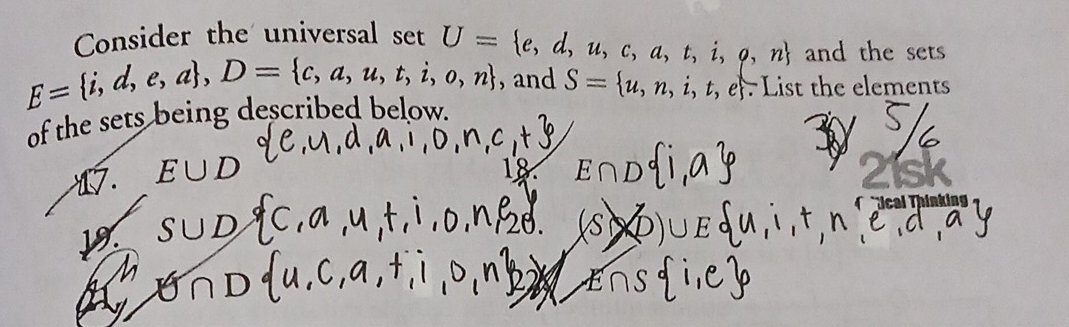 Consider the universal set U = {e, d, u, c, a, t, i, o, n} and the sets
E = {i, d, e, a}, D = {c, a, u, t, i, o, n}, and S = {u, n, i, t, e}. List the elements
of the sets being described below.
5/6
17. E∪D {e,u,d,a,i,o,n,c,t} 18. E∩D{i,a}
21sk
ical Thinking
19. S∪D{c,a,u,t,i,o,n,e} 20. (S∩D)∪E{u,i,t,n,e,d,a}
U∩D{u,c,a,t,i,o,n} 22. E∩S{i,e}